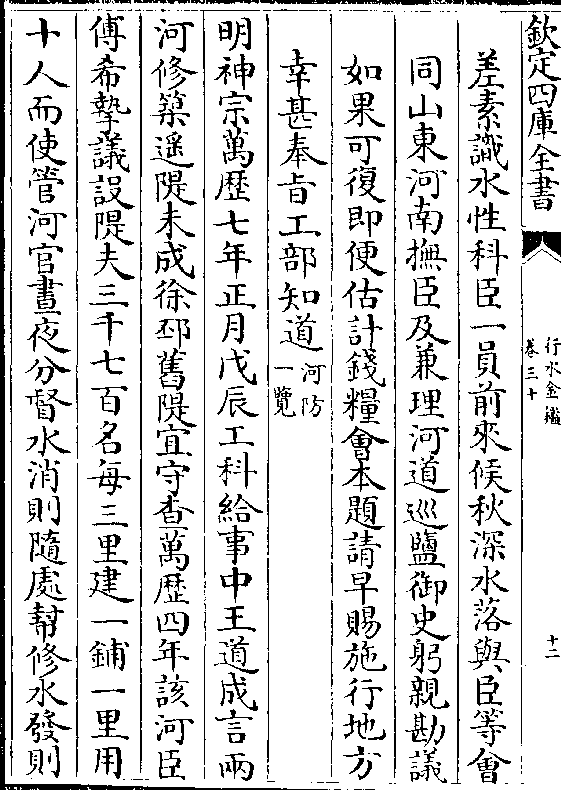 欽定四庫全書
行水金鑑
卷三十
十二
差素識水性科臣一員前來候秋深水落與臣等會
同山東河南撫臣及兼理河道巡鹽御史躬親勘議
如果可復即便估計錢糧會本題請早賜施行地方
幸甚奉旨工部知道河防
一覽
明神宗萬歷七年正月戊辰工科給事中王道成言兩
河修築遥隄未成徐邳舊隄宜守查萬歷四年該河臣
傅希摯議設隄夫三千七百名每三里建一鋪一里用
十人而使管河官晝夜分督水消則隨處幇修水發則